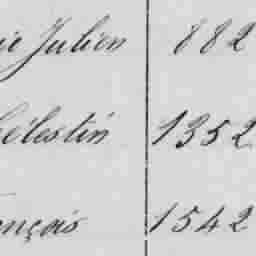 ie Julien 882
Célestin 1352
ançois 1542